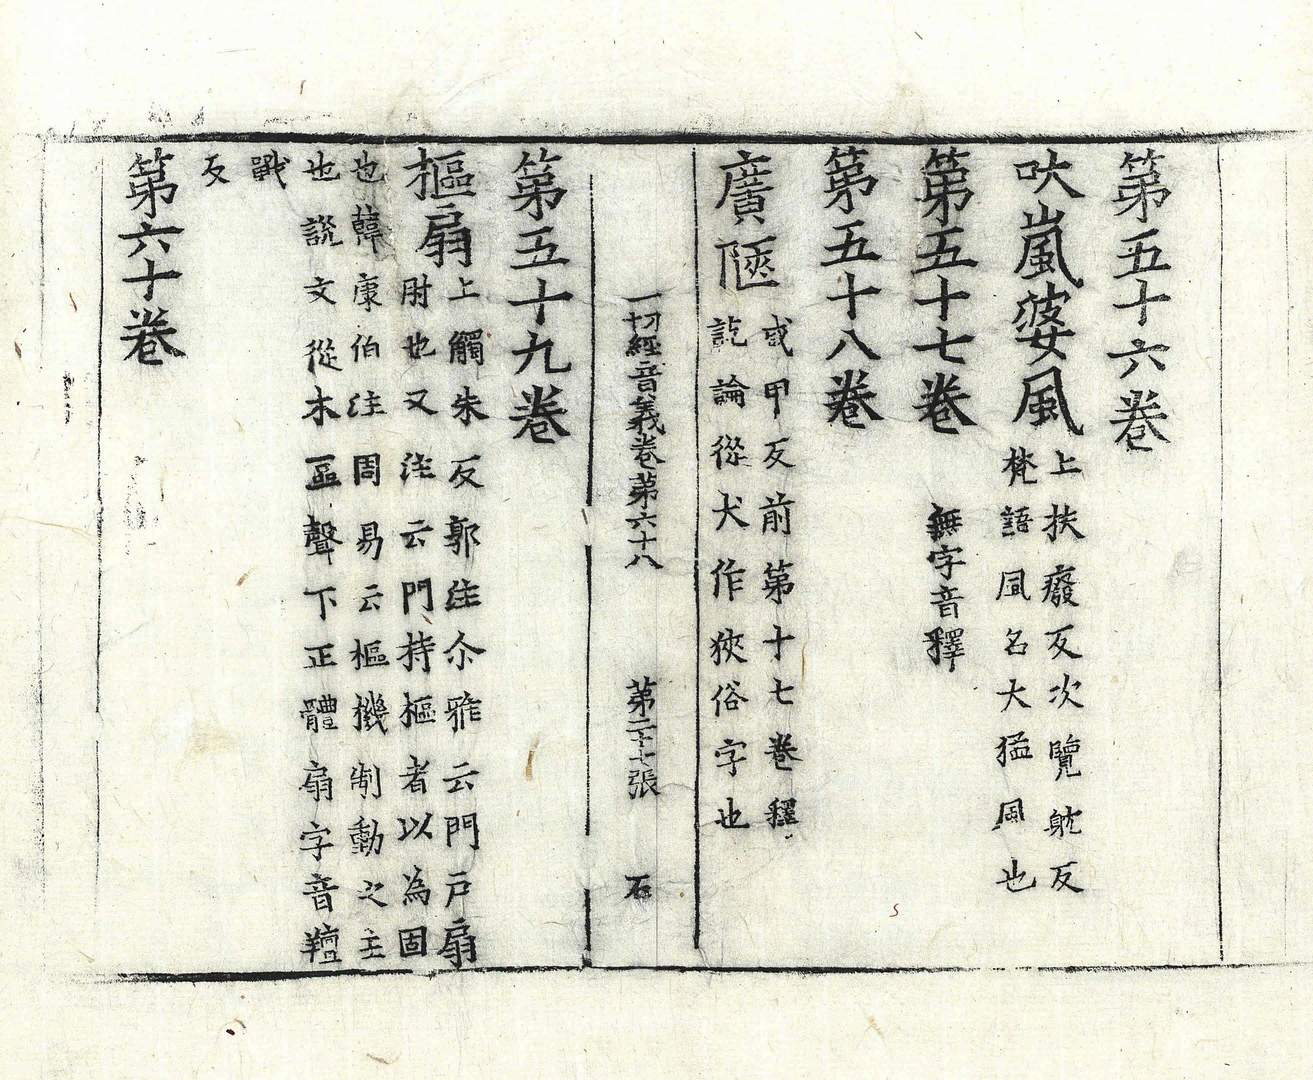 第五十六卷
吠嵐婆風
上扶癈反次覽躭反
梵語風名大猛風也
第五十七卷
無字音釋
第五十八卷
廣陿
咸甲反前第十七卷釋
訖論從犬作狹俗字也
一切經音義卷第六十八 第二十七張 石
第五十九卷
樞扇
上觸朱反郭注尒雅云門戸扇
肘也又注云門持樞者以為固
也韓康伯注周易云樞機制動之主
也說文從木區聲下正體扇字音羶
戰
反
第六十卷